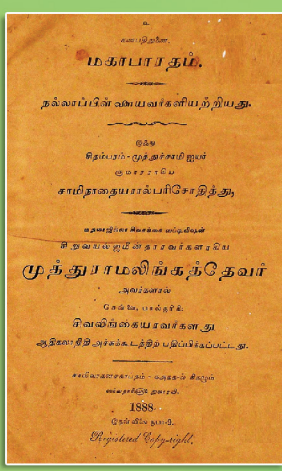 உ
கணபதிதுணை.
மகாபாரதம்.
நல்லாப்பிள்ளையவர்களியற்றியது.
இஃது
சிதம்பரம்-முத்துச்சாமி ஐயர்
குமாரராகிய
சாமிநாதையரால்பரிசோதித்து,
சிறுவயல்ஜமீன்தாரவர்களாகிய
முத்துராமலிங்கத்தேவர்
அவர்களால்
சென்னை,
சிவலிங்கையரவர்களது
ஆதிகலாநிதி அச்சுக்கூடத்திற் பதிப்பிக்கப்பட்டது.
1888
Registered Copy-right.